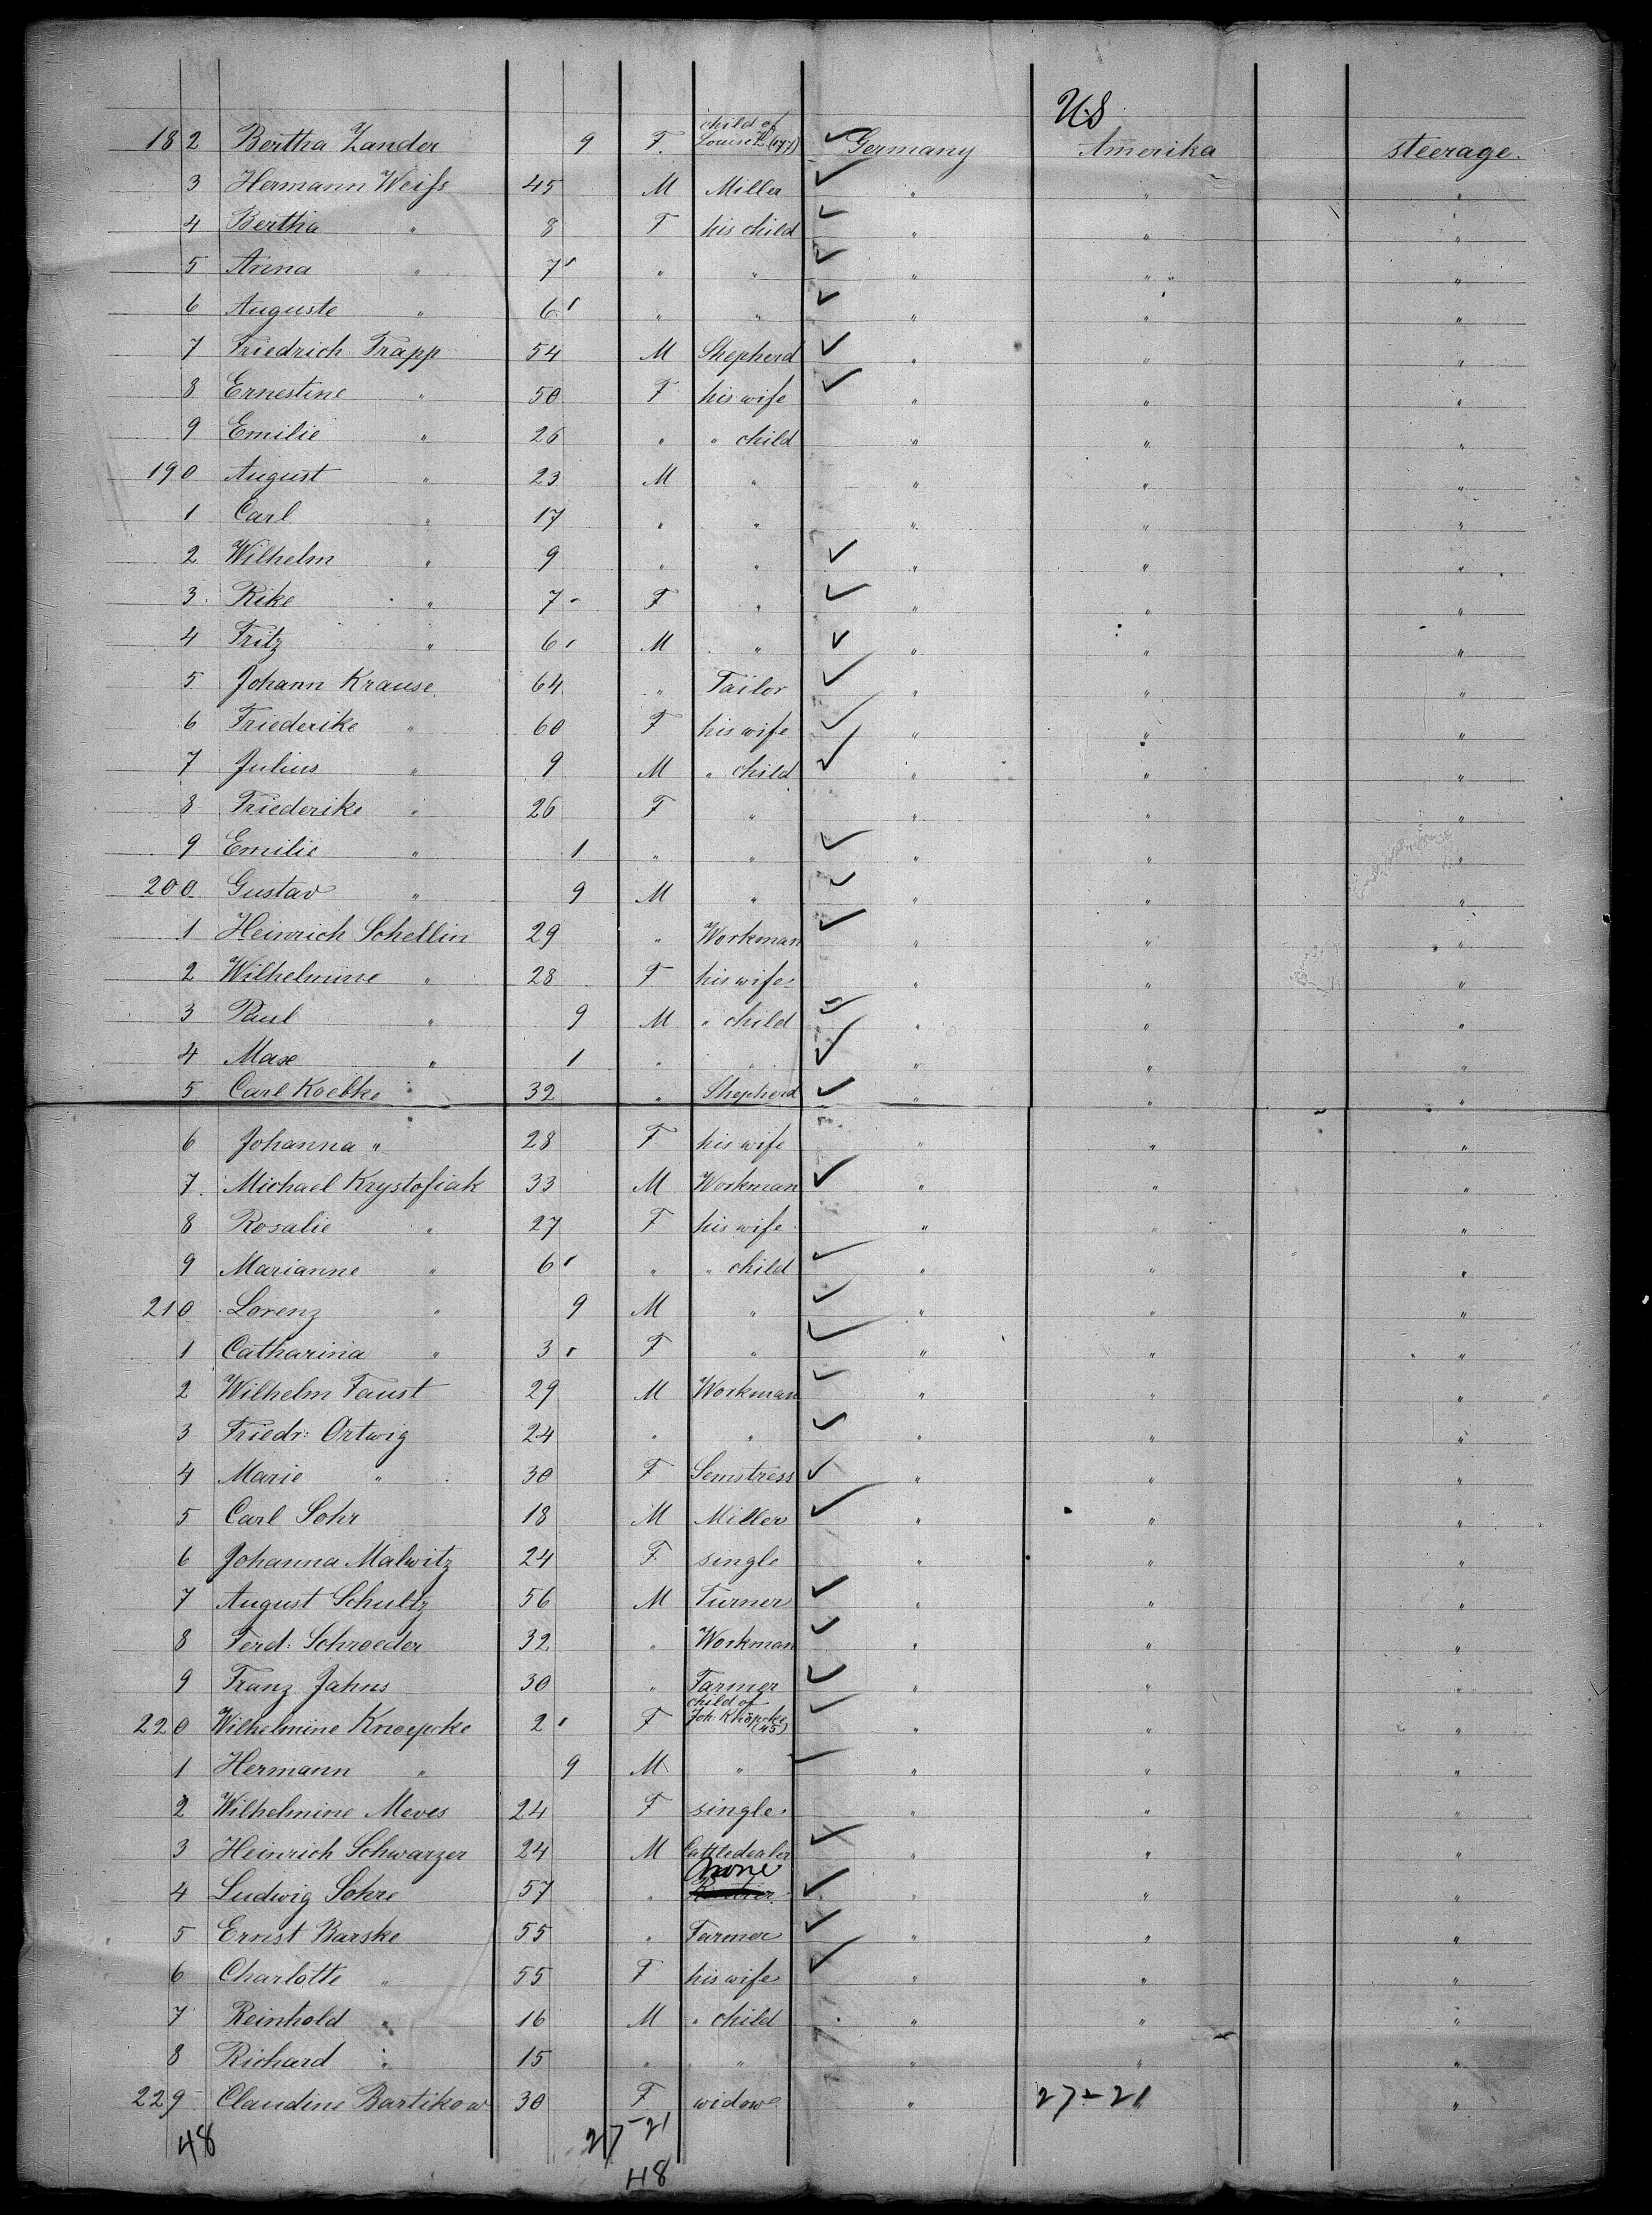 US
182 Bertha Zander 9 F. child of Louise Z. (177) ✓ Germany Amerika steerage.
3 Hermann Weiſs 45 M Miller ✓ " " "
4 Bertha " 8 F his child ✓ " " "
5 Anna " 7 " " ✓ " " "
6 Auguste " 6 " " ✓ " " "
7 Friedrich Trapp 54 M Shepherd ✓ " " "
8 Ernestine " 50 F his wife ✓ " " "
9 Emilie " 26 " " child " " "
190 August " 23 M " " " "
1 Carl " 17 " " " " "
2 Wilhelm " 9 " " ✓ " " "
3 Rike " 7 F " ✓ " " "
4 Fritz " 6 M " ✓ " " "
5 Johann Krause 64 " Tailor ✓ " " "
6 Friederike " 60 F his wife ✓ " " "
7 Julius " 9 M " child ✓ " " "
8 Friederike " 26 F " " " "
9 Emilie " 1 " " ✓ " " "
200 Gustav " 9 M " ✓ " " "
1 Heinrich Schellin 29 " Workman ✓ " " "
2 Wilhelmine " 28 F his wife " " "
3 Paul " 9 M " child ✓ " " "
4 Max " 1 " " ✓ " " "
5 Carl Koebke 32 " Shepherd ✓ " " "
6 Johanna " 28 F his wife " " "
7 Michael Krystofiak 33 M Workman ✓ " " "
8 Rosalie " 27 F his wife " " "
9 Marianne " 6 " " child ✓ " " "
210 Lorenz " 9 M " ✓ " " "
1 Catharina " 3 F " ✓ " " "
2 Wilhelm Faust 29 M Workman ✓ " " "
3 Friedr: Ortwig 24 " " ✓ " " "
4 Marie " 30 F Semstress ✓ " " "
5 Carl Sohr 18 M Miller ✓ " " "
6 Johanna Malwitz 24 F single " " "
7 August Schultz 56 M Turner ✓ " " "
8 Ferd: Schroeder 32 " Workman ✓ " " "
9 Franz Jahns 30 " Farmer ✓ " " "
220 Wilhelmine Knoepcke 2 F child of Joh. Knöpcke (45) ✓ " " "
1 Hermann " 9 M " ✓ " " "
2 Wilhelmine Meves 24 F single " " "
3 Heinrich Schwarzer 24 M Cattledealer ✓ " " "
4 Ludwig Sohre 57 " None ✓ " " "
5 Ernst Barske 55 " Farmer ✓ " " "
6 Charlotte " 55 F his wife ✓ " " "
7 Reinhold " 16 M " child " " "
8 Richard " 15 " " " " "
229 Claudine Bartikow 30 F widow " 27-21 "
48 27-21
48